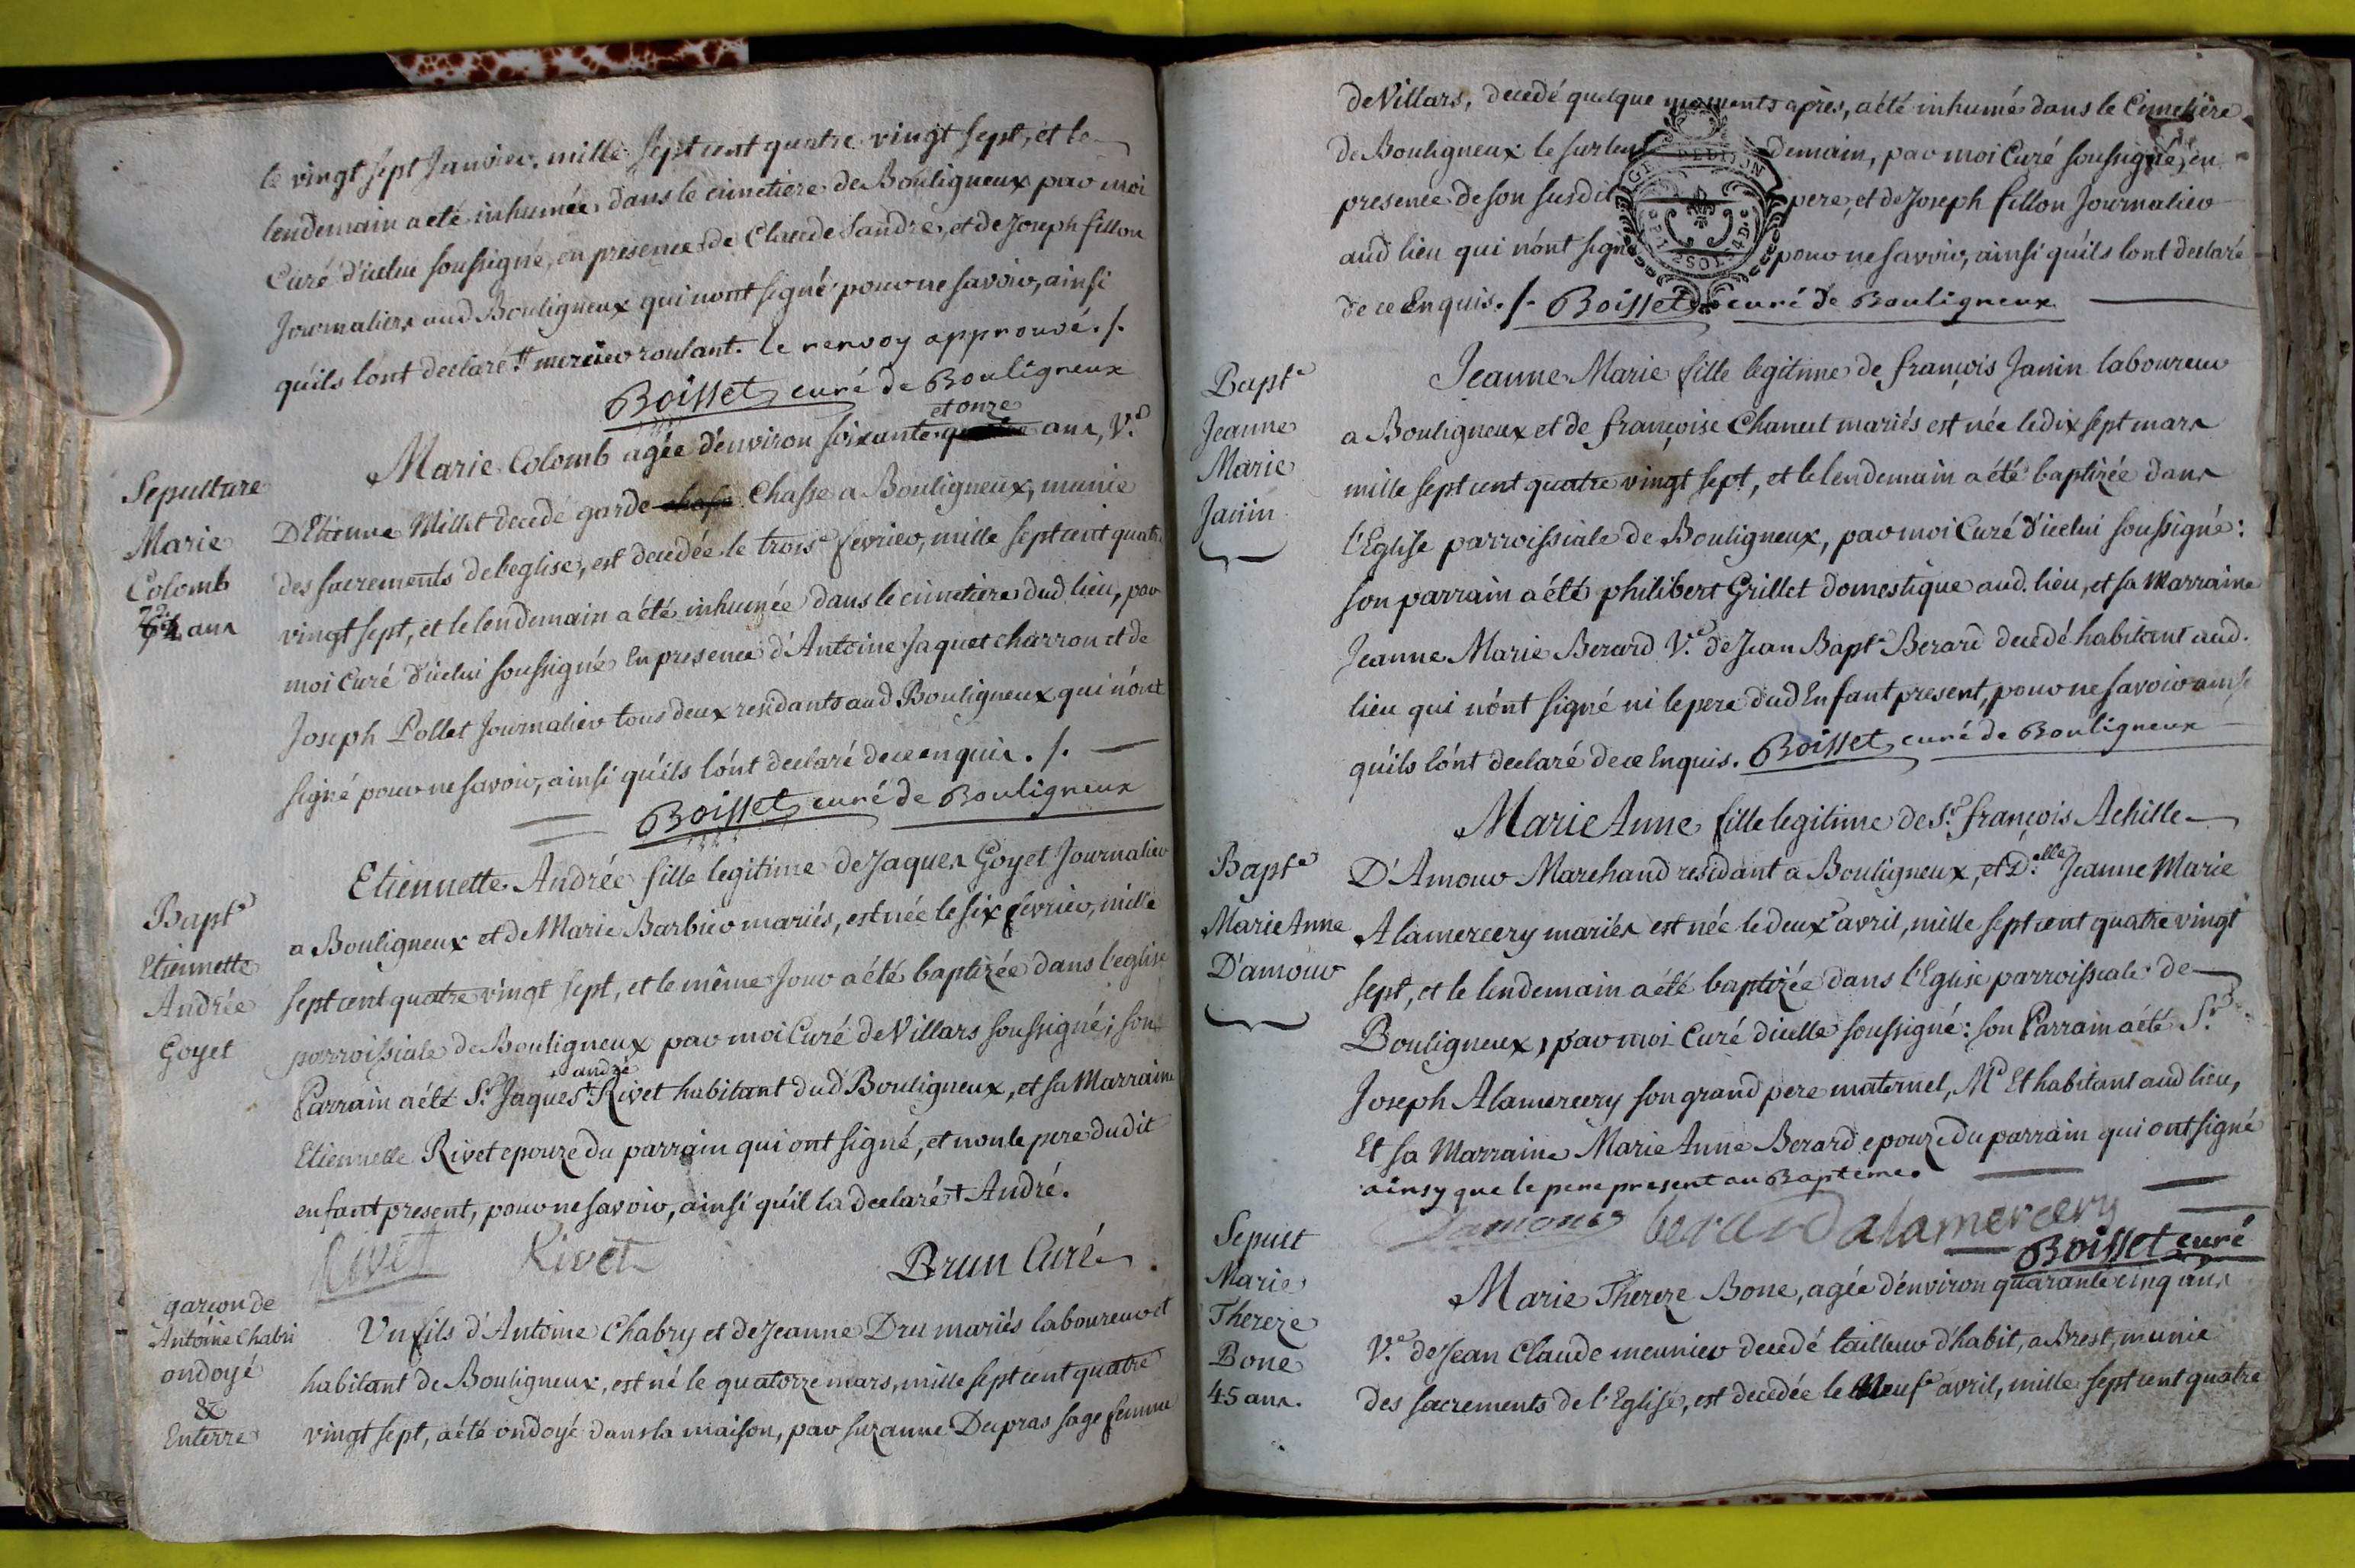 le vingt sept Janvier, mille sept cent quatre vingt sept, et le
lendemain a eté inhumée dans le cimetiere de Bouligneux par moi
Curé d'icelui soussigné, en presence de Claude Sandre, et de Joseph fillon
Journaliers aud Bouligneux qui nont signé pour ne savoir, ainsi
quils lont declaré roulant. le renvoy approuvé. /.
Boisset curé de Bouligneux
Sepulture
Marie
Colomb
ans
et onze
Marie Colomb agée d'environ soixante ans, Ve
D'Etienne Millet decedé garde Chasse a Bouligneux, munie
des sacrements de leglise, est decedée le troise fevrier, mille sept cent quatre
vingt sept, et le lendemain a été inhumée dans le cimetiere dud lieu, par
moi Curé d'icelui soussigné En presence d'Antoine Jaquet charron et de
Joseph Pollet Journalier tous deux residants aud Bouligneux qui n'ont
signé pour ne savoir, ainsi quils l'ont declaré de ce enquis. /.
Boisset curé de Bouligneux
Bapte
Etiennette
Andrée
Goyet
Etiennette Andrée fille legitime de Jaques Goyet Journalier
a Bouligneux et de Marie Barbier mariés, est née le six fevrier, mille
sept cent quatre vingt sept, et le même Jour a été baptizée dans l'eglise
parroissiale de Bouligneux par moi Curé de Villars soussigné; son
+ andré
Parrain a été Sr Jaques + Rivet habitant dud Bouligneux, et sa Marraine
Etiennette Rivet epouze du parrain qui ont signé, et non le pere dudit
enfant present, pour ne savoir, ainsi qu'il la declaré + André.
Rivet Rivet Brun Curé
garçon de
Antoine Chabri
ondoyé
&
Enterré
Un fils d'Antoine Chabry et de Jeanne Dru mariés laboureur et
habitant de Bouligneux, est né le quatorze mars, mille sept cent quatre
vingt sept, a été ondoyé dans la maison, par suzanne Dupras sage femme
de Villars, decedé quelque moments après, a été inhumé dans le Cimetière
de Bouligneux le surlendemain, par moi Curé soussigné, en
presence de son susdit pere, et de Joseph fillon Journalier
aud lieu qui n'ont signé pour ne savoir, ainsi qu'ils lont declaré
de ce Enquis. /. Boisset curé de Bouligneux
Bapte
Jeanne
Marie
Janin
Jeanne Marie fille legitime de françois Janin laboureur
a Bouligneux et de françoise Chanut mariés est née le dix sept mars
mille sept cent quatre vingt sept, et le lendemain a été baptizée dans
l'Eglise parroissiale de Bouligneux, par moi Curé d'icelui soussigné:
son parrain a été philibert Grillet domestique aud. lieu, et sa Marraine
Jeanne Marie Berard Ve de Jean Bapte Berard decedé habitant aud.
lieu qui n'ont signé ni le pere dud Enfant present, pour ne savoir ainsi
qu'ils l'ont declaré de ce Enquis. Boisset curé de Bouligneux
Bapte
Marie Anne
D'amour
Marie Anne fille legitime de Sr françois Achille
D'Amour Marchand residant a Bouligneux, et Delle Jeanne Marie
Alamercery mariés est née le deuxe avril, mille sept cent quatre vingt
sept, et le lendemain a été baptizée dans l'Eglise parroissiale de
Bouligneux, par moi Curé d'icelle soussigné: son Parrain a été Sr
Joseph Alamercery son grand pere maternel, Md Et habitant aud lieu,
Et sa Marraine Marie Anne Berard epouze du parrain qui ont signé
ainsy que le pere present au Bapteme.
Damour berard alamercery
Boisset curé
Sepult
Marie
Thereze
Bone
45 ans.
Marie Thereze Bone, agée d'environ quarante cinq ans
Ve de Jean Claude meunier decedé tailleur d'habit, a Brest, munie
des sacrements de l'Eglise, est decedée le Neufe avril, mille sept cent quatre